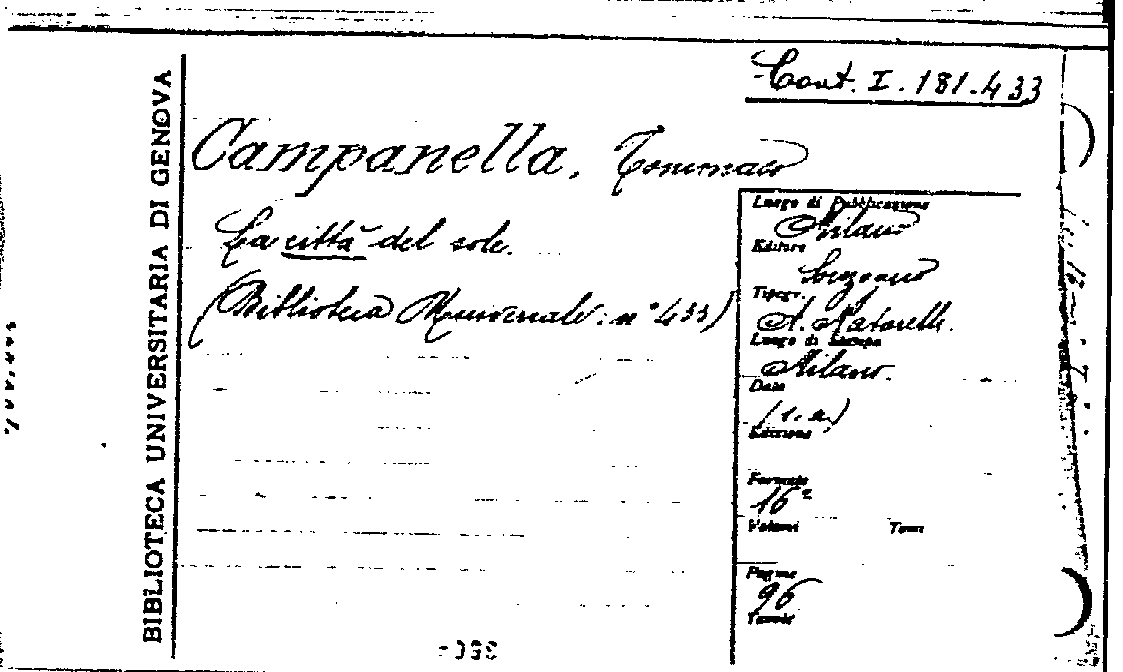 Cont. I. 181.433
BIBLIOTECA UNIVERSITARIA DI GENOVA
Campanella, Tommaso
La città del sole.
(Biblioteca Universale: n° 433)
Luogo di Pubblicazione
Milano
Editore
Sonzogno
Tipogr.
A. Matarelli.
Luogo di Stampa
Milano.
Data
(s.a.)
Edizione
Formato
16°
Volumi Tomi
Pagine
96
Tavole